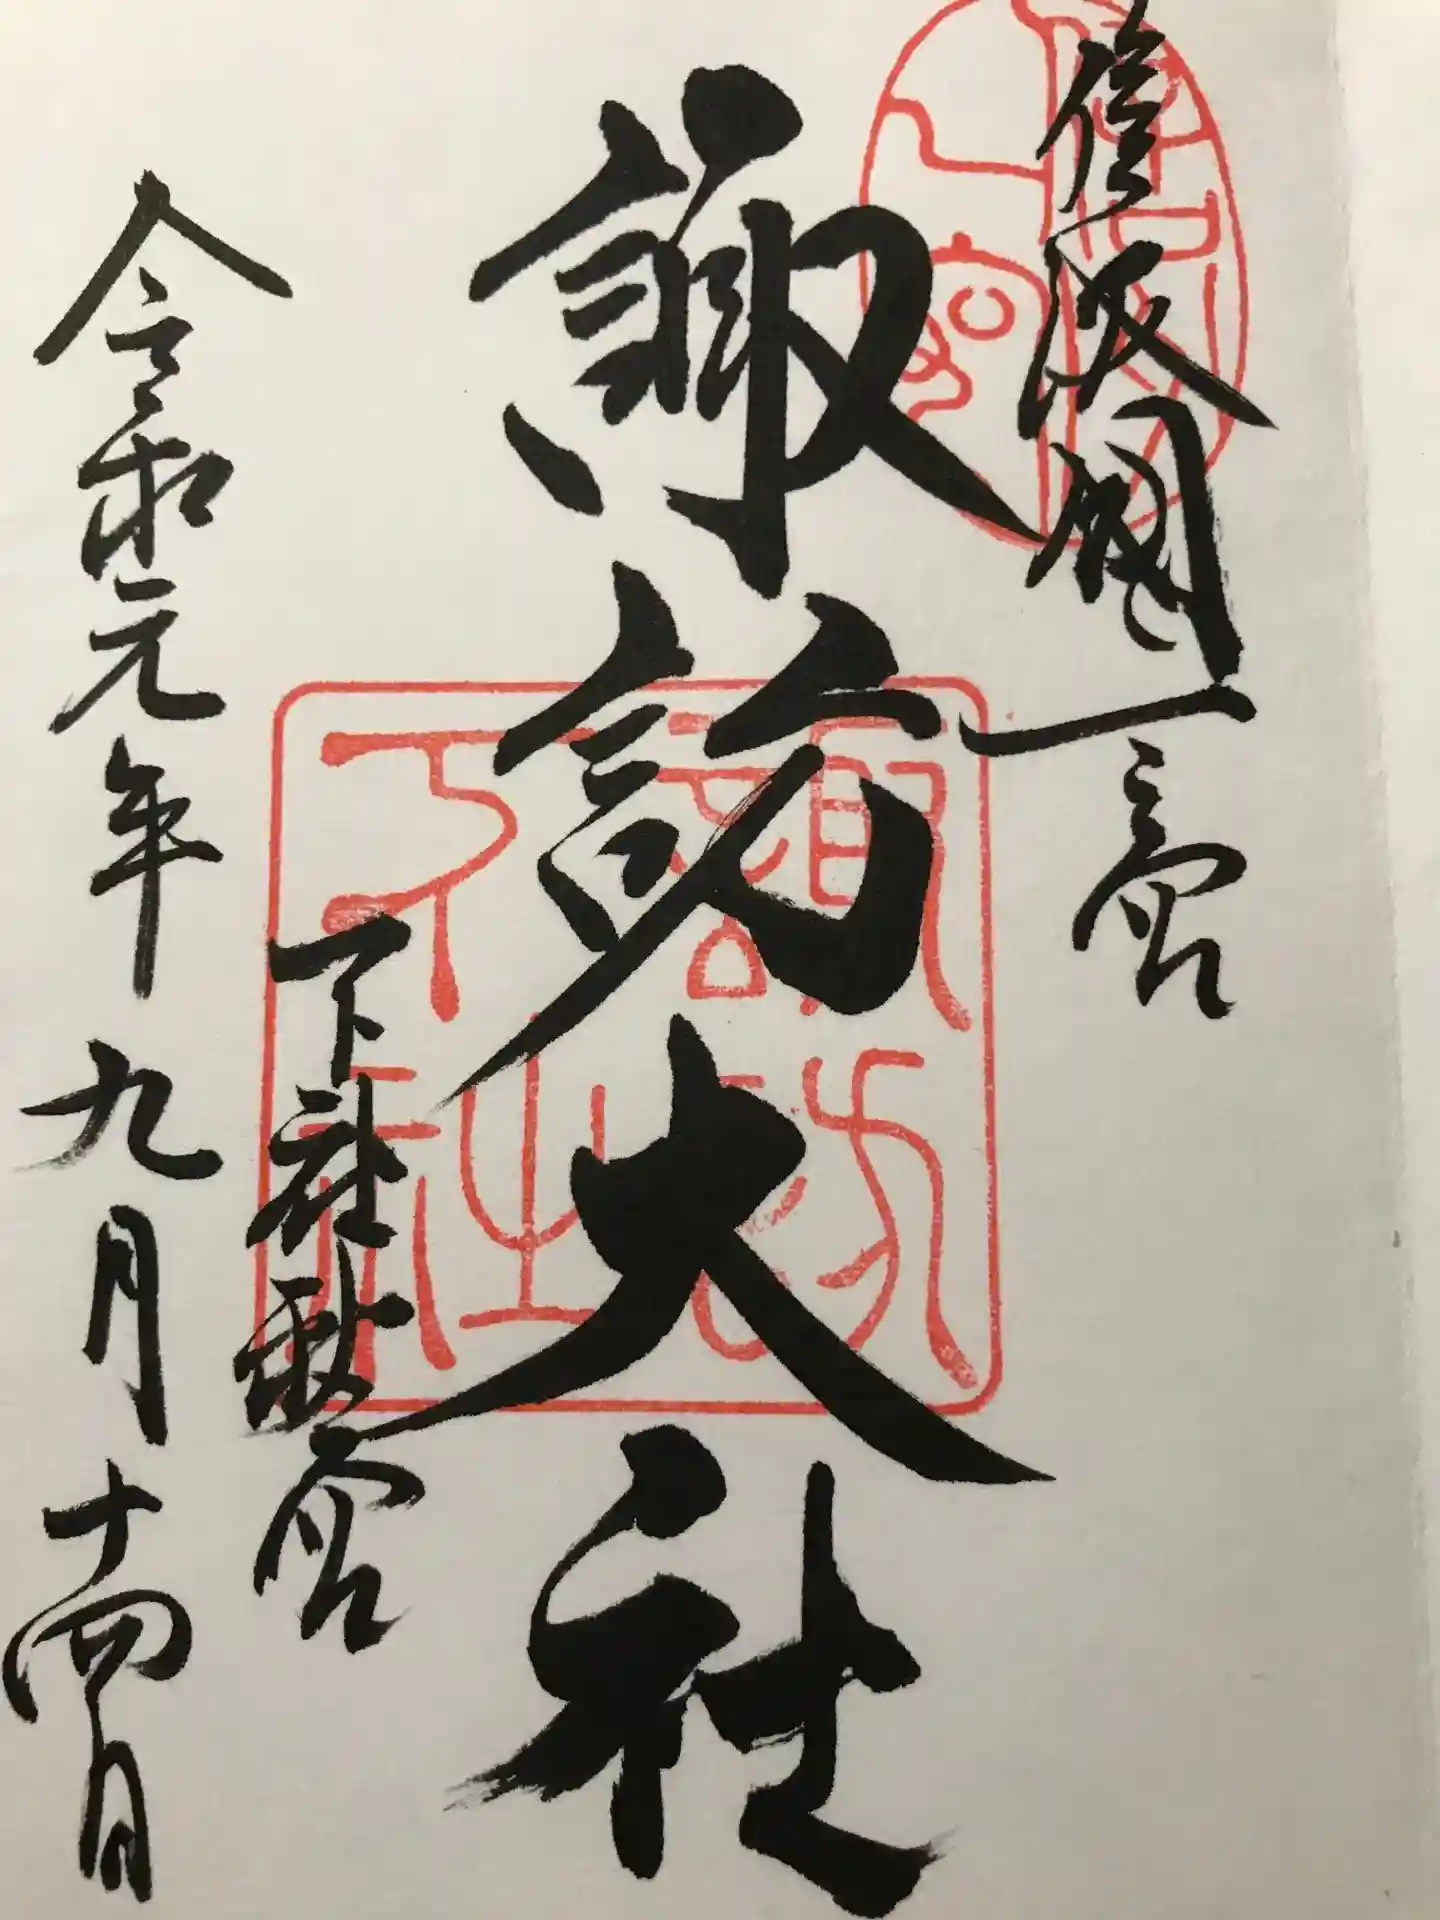 信濃國一之宮
諏訪大社
下社秋宮
令和元年九月十四日
諏訪下社